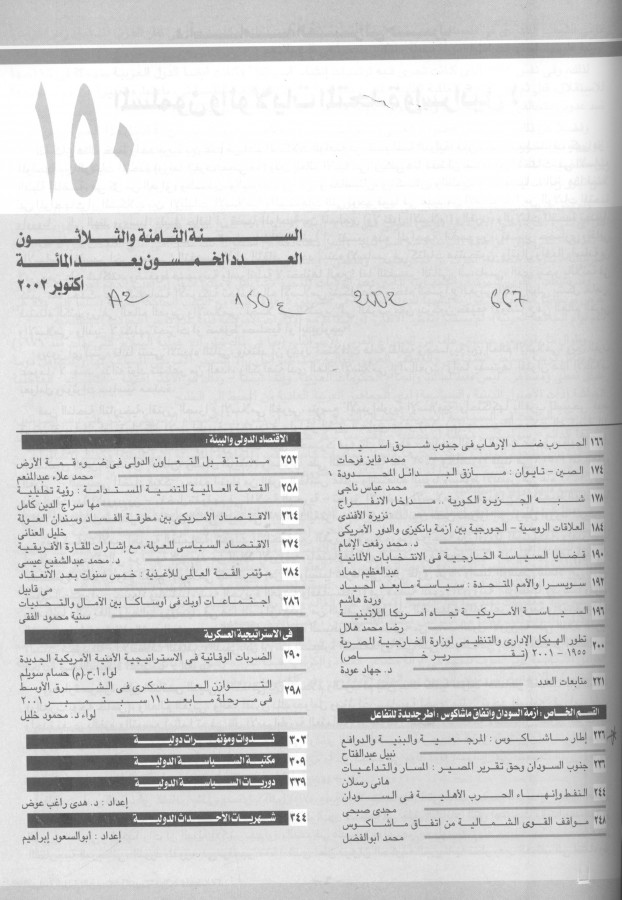 ١٥٠
الســـــنـــة الثـامنـة والثـلاثـون
العـدد الخـمـسـون بعـد المـائـة
أكتوبر ٢٠٠٢
A2 150 ع 2002 667
١٦٦ الحــرب ضــد الإرهـاب فى جنوب شـرق اسـيـا
محمد فايز فرحات
١٧٤ الصـين - تـايـوان : مــازق البــدائــل المحــدودة
محمد عباس ناجى
١٧٨ شــبــه الجــزيـرة الكـوريـة .. مـداخل الانفـراج
نزيرة الأفندى
١٨٤ العلاقات الروسية - الجورجية بين أزمة بانكيزى والدور الأمريكى
د. محمد رفعت الإمام
١٩٠ قـضـايا السـيـاسـة الخـارجـيـة فى الانتخابات الألمانية
عبدالعظيم حماد
١٩٢ سـويـسـرا والأمم المتـحـدة : سـيـاسـة مـابـعـد الحـيـاد
وردة هاشم
١٩٦ السـيـاسـة الأمـريـكـيـة تجـاه أمـريكا اللاتيـنـيـة
رضا محمد هلال
٢٠٠ تطور الهيكل الإدارى والتنظيمى لوزارة الخارجية المصرية
١٩٥٥ - ٢٠٠١ (تـقـــريـــر خـــاص)
د. جهاد عودة
٢٢١ متابعات العدد
القسم الخـاص : أزمة السودان واتفاق ماشاكوس : أطر جديدة للتفاعل
٢٢٦ إطار مـاشـاكـوس : المرجـعـيـة والبنية والدوافع
نبيل عبدالفتاح
٢٣٦ جنوب السودان وحق تقرير المصير : المسار والتداعيات
هانى رسلان
٢٤٤ النفط وإنهـاء الحـرب الأهليـة فى السـودان
مجدى صبحى
٢٤٨ مـواقـف القـوى الشـمـاليـة من اتفـاق مـاشـاكـوس
محمد أبوالفضل
الاقتصاد الدولى والبيئة :
٢٥٢ مـسـتـقـبـل التعـاون الدولى فى ضـوء قـمـة الأرض
محمد علاء عبدالمنعم
٢٥٨ القـمـة العـالمـيـة للتنميـة المسـتـدامـة : رؤية تحليلية
مها سراج الدين كامل
٢٦٤ الاقـتـصـاد الأمـريـكى بين مطرقـة الفـسـاد وسندان العولة
خليل العنانى
٢٧٤ الاقـتـصـاد السـيـاسى للعـولة، مع إشـارات للقـارة الأفـريـقـيـة
د. محمد عبدالشفيع عيسى
٢٨٤ مـؤتمـر القـمـة العـالمى للأغذيـة : خـمـس سنوات بعـد الانعـقـاد
مى قابيل
٢٨٦ اجـتـمـاعـات أوبك فى أوسـاكـا بين الآمال والتحديـات
سنية محمود الفقى
فى الاستراتيجية العسكرية
٢٩٠ الضربات الوقائية فى الاستراتيجية الأمنية الأمريكية الجديدة
لواء أ.ح (م) حسام سويلم
٢٩٨ التـــوازن العـــســـكـــرى فى الشـــرق الأوسط
فى مـرحـلة مـابـعـد ١١ سـبـتـمـبـر ٢٠٠١
لواء د. محمود خليل
٣٠٣ نـدوات ومـؤتمـرات دوليـة
٣٠٩ مكتبـة السـيـاسـة الدوليـة
٣٣٩ دوريات السـيـاسـة الدوليـة
إعداد : د. هدى راغب عوض
٣٤٤ شـهـريات الأحـداث الدوليـة
إعداد : أبوالسعود إبراهيم